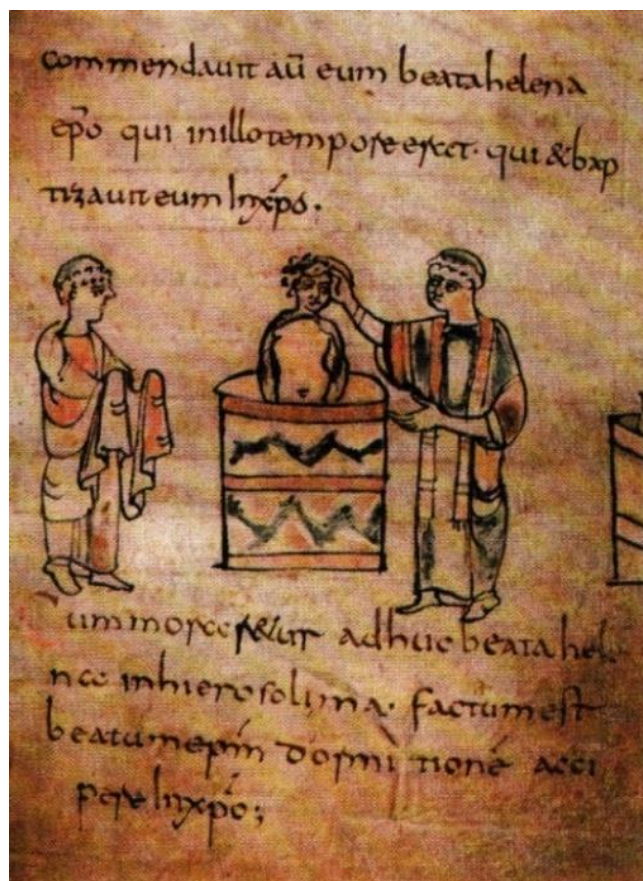 commendauit aū eum beatahelena
ep̄o qui inillotempore erat · qui & bap
tizauit eum Inxp̄o .
Cum morar&ur adhuc beata hele
na inhierosolima · factum est
beatum ep̄m dormitionē acci
pere Inxp̄o ;